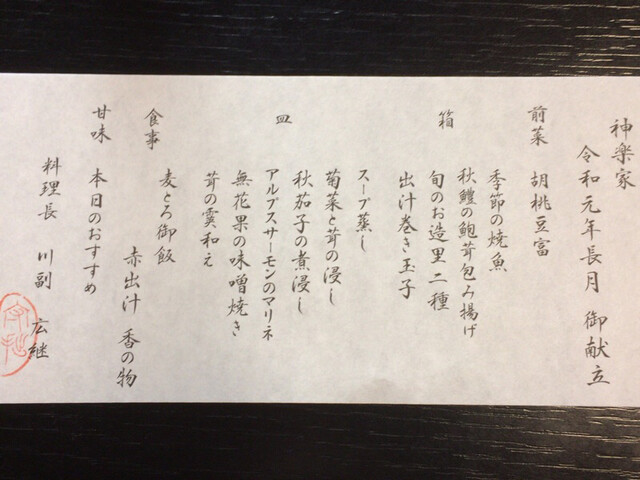 神楽家
令和元年長月 御献立
前菜 胡桃豆富
季節の焼魚
秋鱧の鮑茸包み揚げ
箱 旬のお造里 二種
出汁巻き玉子
スープ蒸し
菊菜と茸の浸し
秋茄子の煮浸し
皿 アルプスサーモンのマリネ
無花果の味噌焼き
茸の霙和え
麦とろ御飯
食事 赤出汁 香の物
甘味 本日のおすすめ
料理長 川副 広継